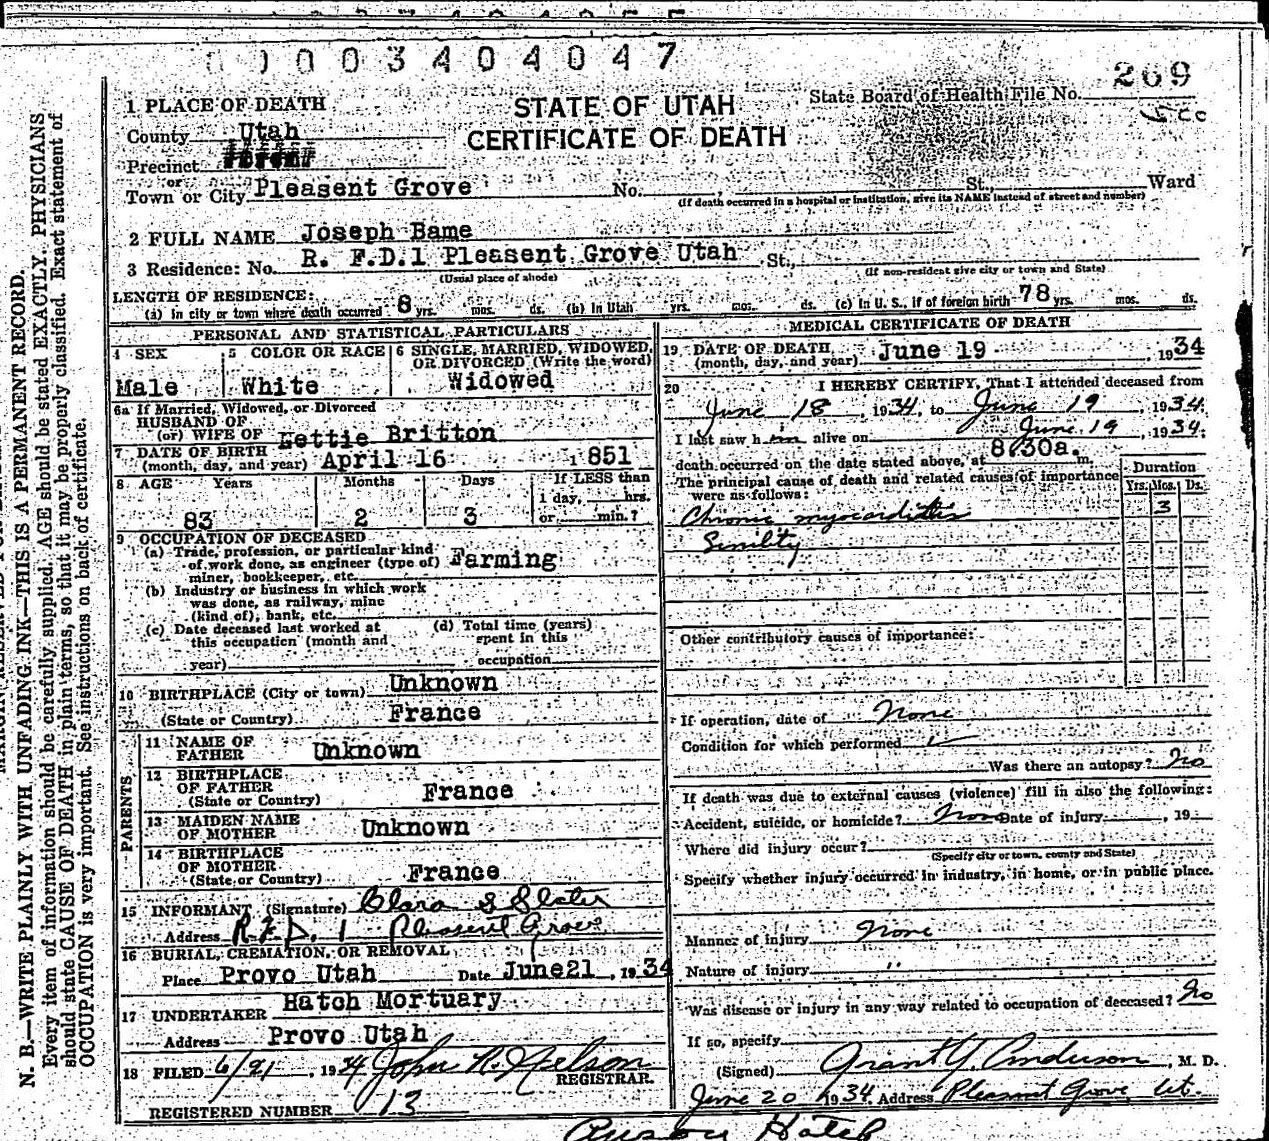 1003404047
269
1 PLACE OF DEATH
STATE OF UTAH
CERTIFICATE OF DEATH
State Board of Health File No.
County Utah
Precinct
or
Town or City Pleasent Grove No. , St., Ward
(If death occurred in a hospital or institution, give its NAME instead of street and number)
2 FULL NAME Joseph Bame
3 Residence: No. R. F.D.1 Pleasent Grove Utah St.,
(Usual place of abode) (If non-resident give city or town and State)
LENGTH OF RESIDENCE:
(a) In city or town where death occurred 8 yrs. mos. ds. (b) In Utah yrs. mos. ds. (c) In U. S., if of foreign birth 78 yrs. mos. ds.
PERSONAL AND STATISTICAL PARTICULARS
4 SEX
Male
5 COLOR OR RACE
White
6 SINGLE, MARRIED, WIDOWED,
OR DIVORCED (Write the word)
Widowed
6a If Married, Widowed, or Divorced
HUSBAND OF
(or) WIFE OF Lettie Britton
7 DATE OF BIRTH
(month, day, and year) April 16 1851
8 AGE Years Months Days If LESS than
1 day, hrs.
83 2 3 or min.?
9 OCCUPATION OF DECEASED
(a) Trade, profession, or particular kind
of work done, as engineer (type of) Farming
miner, bookkeeper, etc.
(b) Industry or business in which work
was done, as railway, mine
(kind of), bank, etc.
(c) Date deceased last worked at
this occupation (month and
year)
(d) Total time (years)
spent in this
occupation
10 BIRTHPLACE (City or town) Unknown
(State or Country) France
PARENTS
11 NAME OF
FATHER Unknown
12 BIRTHPLACE
OF FATHER France
(State or Country)
13 MAIDEN NAME
OF MOTHER Unknown
14 BIRTHPLACE
OF MOTHER
(State or Country) France
15 INFORMANT (Signature) Clara S Slater
Address R.F.D. 1 Pleasent Grove
16 BURIAL, CREMATION, OR REMOVAL
Place Provo Utah Date June 21, 1934
17 UNDERTAKER Hatch Mortuary
Address Provo Utah
18 FILED 6/21, 1934 John R. Nelson
REGISTRAR.
REGISTERED NUMBER 13
MEDICAL CERTIFICATE OF DEATH
19 DATE OF DEATH
(month, day, and year) June 19 1934
20 I HEREBY CERTIFY, That I attended deceased from
June 18, 1934, to June 19, 1934.
I last saw him alive on June 19, 1934.
death occurred on the date stated above, at 8:30a. m.
The principal cause of death and related causes of importance
were as follows:
Duration
Yrs. Mos. Ds.
Chronic myocarditis 3
Senility
Other contributory causes of importance:
If operation, date of None
Condition for which performed
Was there an autopsy? No
If death was due to external causes (violence) fill in also the following:
Accident, suicide, or homicide? None Date of injury , 19
Where did injury occur?
(Specify city or town, county and State)
Specify whether injury occurred in industry, in home, or in public place.
Manner of injury None
Nature of injury "
Was disease or injury in any way related to occupation of deceased? No
If so, specify
(Signed) Grant Y. Anderson, M. D.
June 20 1934 Address Pleasant Grove Ut.
N. B.—WRITE PLAINLY WITH UNFADING INK—THIS IS A PERMANENT RECORD.
Every item of information should be carefully supplied. AGE should be stated EXACTLY. PHYSICIANS
should state CAUSE OF DEATH in plain terms, so that it may be properly classified. Exact statement of
OCCUPATION is very important. See instructions on back of certificate.